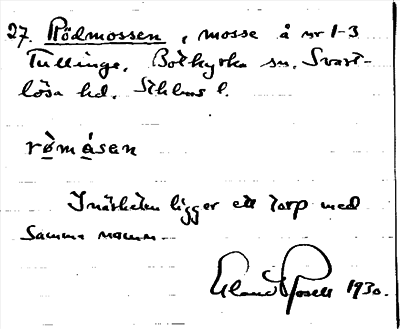 27. Rödmossen, mosse å nr 1-3
Tullinge, Botkyrka sn. Svart-
lösa hd. Sthlms l.
rö̀mǻsen
I närheten ligger ett torp med
samma namn.
Erland Rosell 1930.